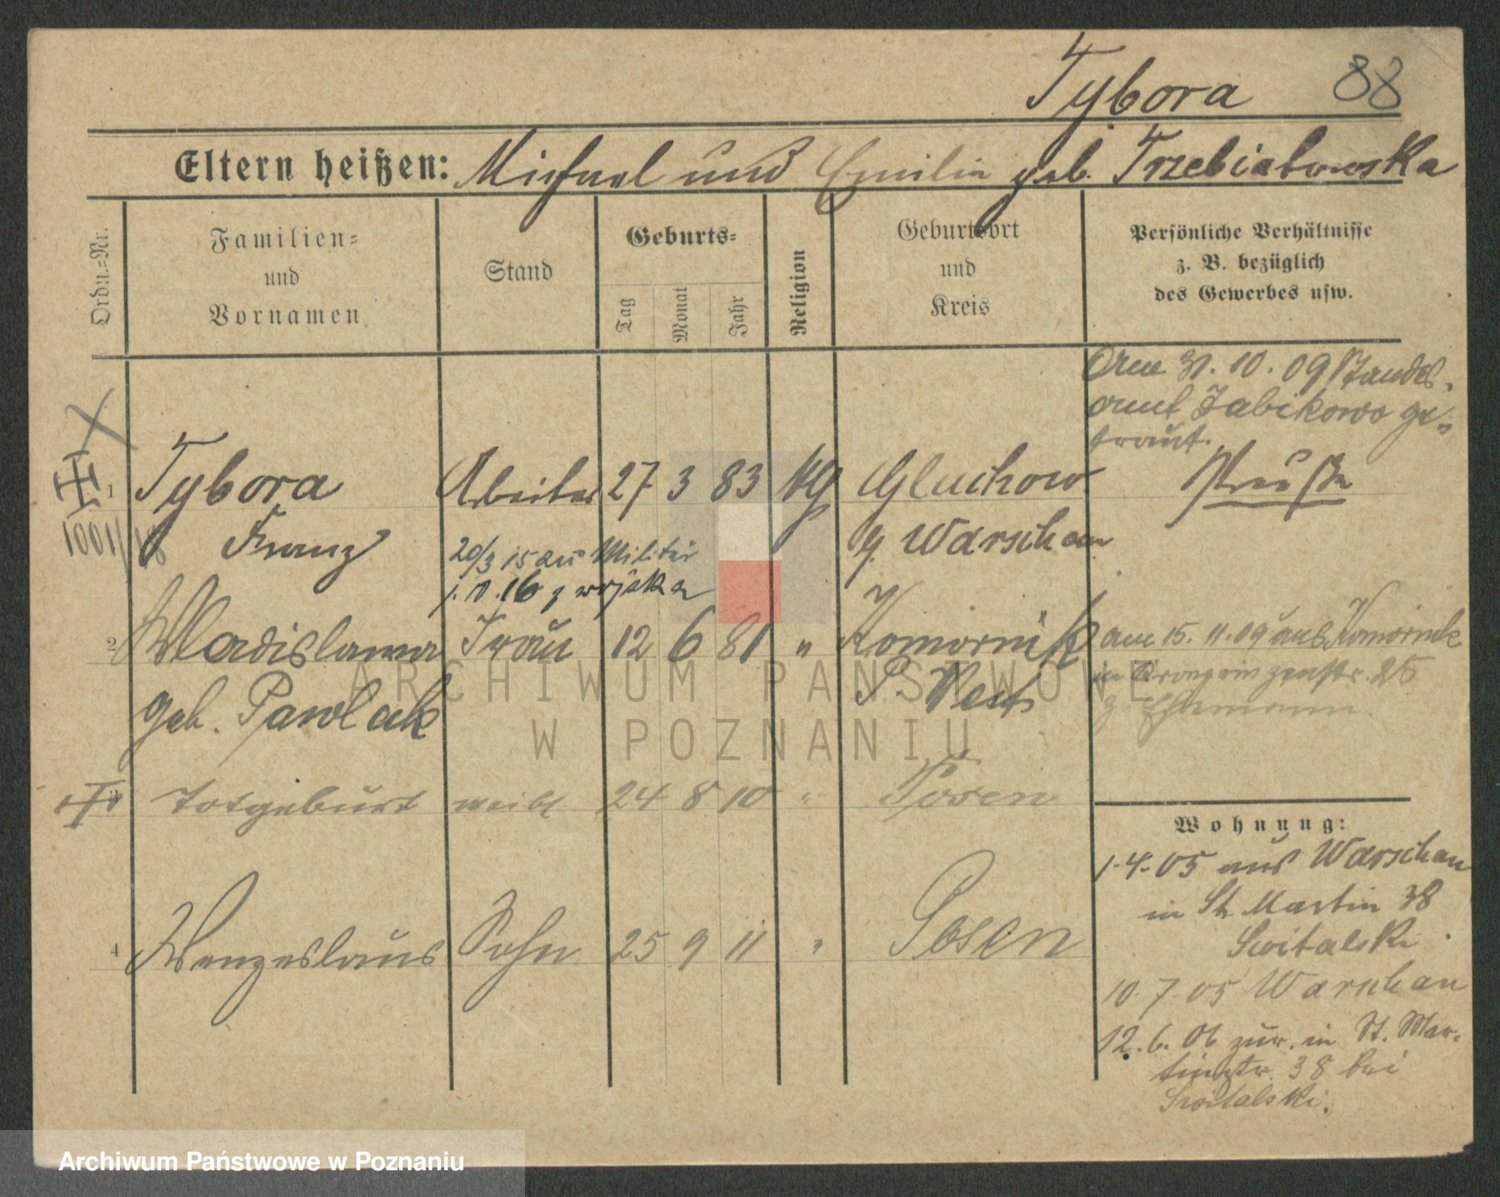 Tybora 88
Eltern heißen: Michael und Emilie geb. Trzebiatowska
Ordn.=Nr.
Familien=
und
Vornamen
Stand
Geburts=
Tag
Monat
Jahr
Religion
Geburtsort
und
Kreis
Persönliche Verhältnisse
z. B. bezüglich
des Gewerbes usw.
Am 31. 10. 09 Standes-
amt Zabikowo ge-
traut.
1 Tybora Arbeiter 27 3 83 Gluchow Preuße
1001/18 Franz
20/3 15 zu Militär
g. Warschau
1. 11. 16
2 Wladislawa Frau 12 6 81 " Komornik
am 15. 11. 09 aus Komornik
in
geb. Pawlak P. West
z. Ehemann.
ARCHIWUM PAŃSTWOWE
W POZNANIU
3 Totgeburt weibl 24 8 10 " Posen
Wohnung:
1.4.05 aus Warschau
in St. Martin 38
Switalski.
4 Wenzeslaus Sohn 25 9 11 " Posen
10. 7. 05 Warschau
12. 6. 06 zur. in St. Mar-
tinstr. 38 bei
Switalski.
Archiwum Państwowe w Poznaniu